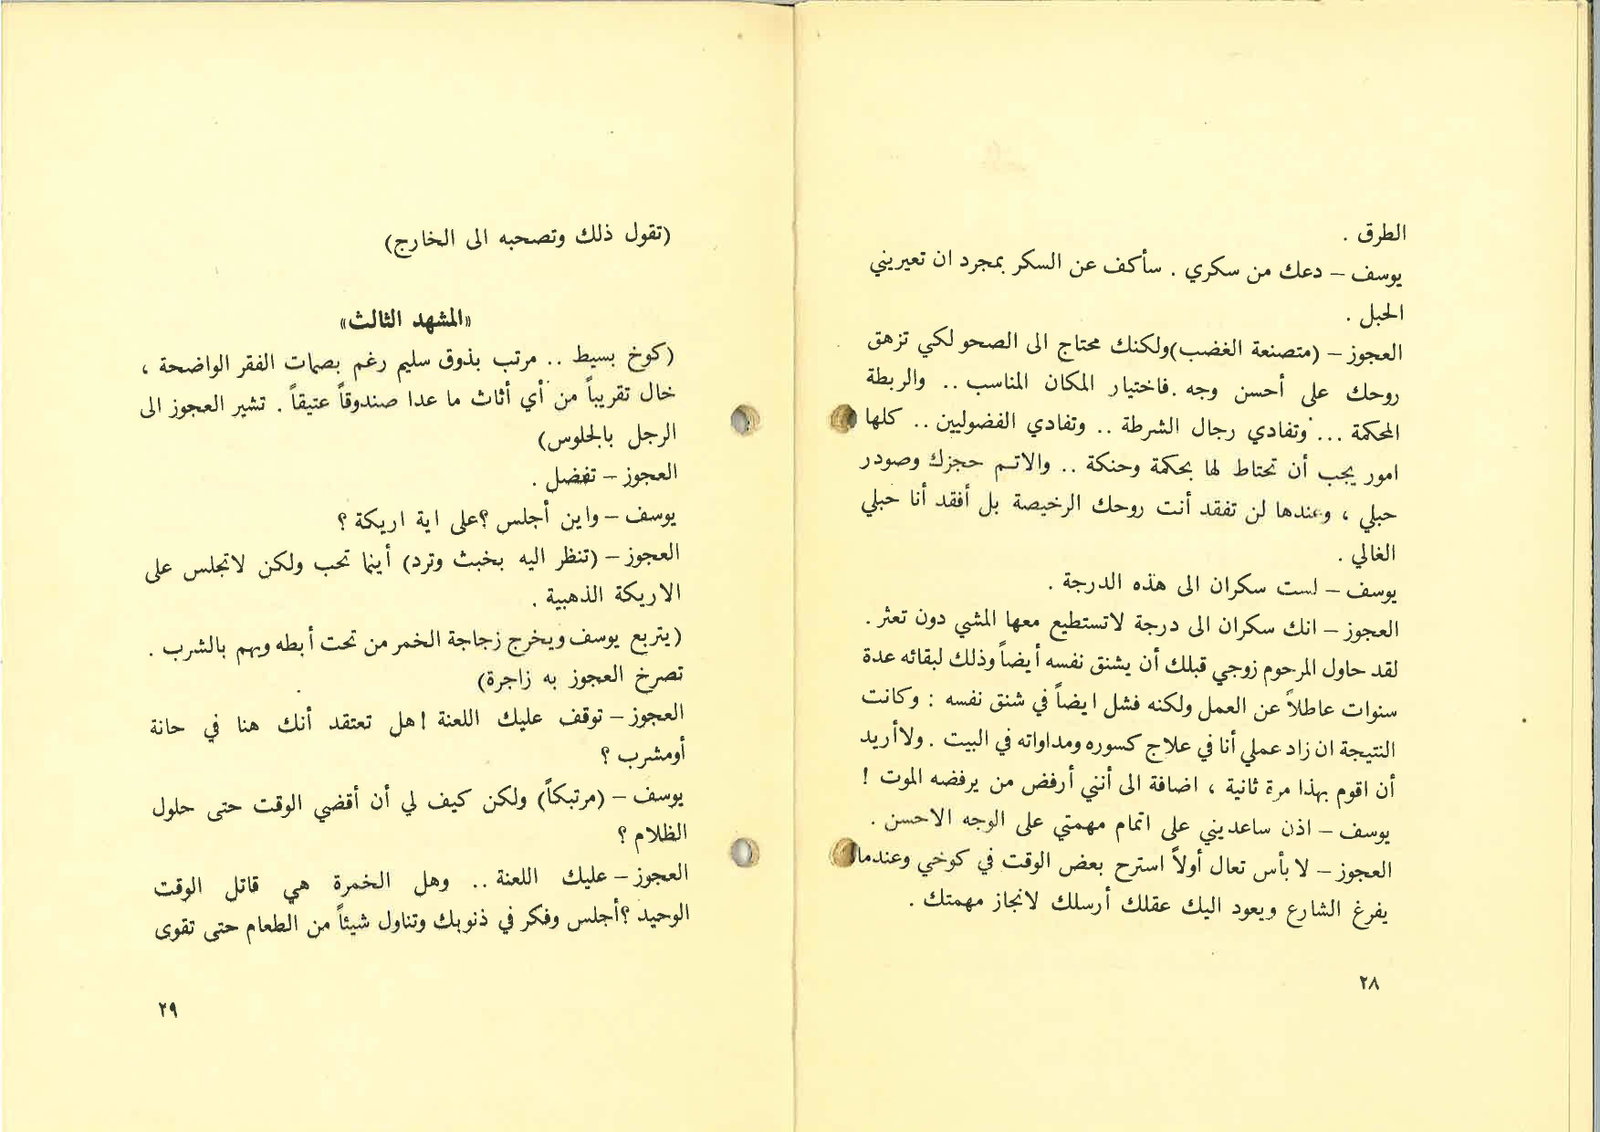 الطرق .
يوسف – دعك من سكري . سأكف عن السكر بمجرد ان تعيريني
الحبل .
العجوز – (متصنعة الغضب)ولكنك محتاج الى الصحو لكي تزهق
روحك على أحسن وجه .فاختيار المكان المناسب .. والربطة
المحكمة ... وتفادي رجال الشرطة .. وتفادي الفضوليين .. كلها
امور يجب أن تحتاط لها بحكمة وحنكة .. والاتم حجزك وصودر
حبلي ، وعندها لن تفقد أنت روحك الرخيصة بل أفقد أنا حبلي
الغالي .
يوسف – لست سكران الى هذه الدرجة .
العجوز – انك سكران الى درجة لاتستطيع معها المشي دون تعثر .
لقد حاول المرحوم زوجي قبلك أن يشنق نفسه أيضاً وذلك لبقائه عدة
سنوات عاطلاً عن العمل ولكنه فشل ايضاً في شنق نفسه : وكانت
النتيجة ان زاد عملي أنا في علاج كسوره ومداواته في البيت . ولاأريد
أن اقوم بهذا مرة ثانية ، اضافة الى أنني أرفض من يرفضه الموت !
يوسف – اذن ساعديني على اتمام مهمتي على الوجه الاحسن .
العجوز – لا بأس تعال أولاً استرح بعض الوقت في كوخي وعندما
يفرغ الشارع ويعود اليك عقلك أرسلك لانجاز مهمتك .
٢٨
(تقول ذلك وتصحبه الى الخارج)
«المشهد الثالث»
(كوخ بسيط .. مرتب بذوق سليم رغم بصمات الفقر الواضحة ،
خال تقريباً من أي أثاث ما عدا صندوقاً عتيقاً . تشير العجوز الى
الرجل بالجلوس)
العجوز – تفضل .
يوسف – واين أجلس ؟على اية اريكة ؟
العجوز – (تنظر اليه بخبث وترد) أينما تحب ولكن لاتجلس على
الاريكة الذهبية .
(يتربع يوسف ويخرج زجاجة الخمر من تحت أبطه ويهم بالشرب .
تصرخ العجوز به زاجرة)
العجوز – توقف عليك اللعنة !هل تعتقد أنك هنا في حانة
أومشرب ؟
يوسف – (مرتبكاً) ولكن كيف لي أن أقضي الوقت حتى حلول
الظلام ؟
العجوز – عليك اللعنة .. وهل الخمرة هي قاتل الوقت
الوحيد ؟أجلس وفكر في ذنوبك وتناول شيئاً من الطعام حتى تقوى
٢٩